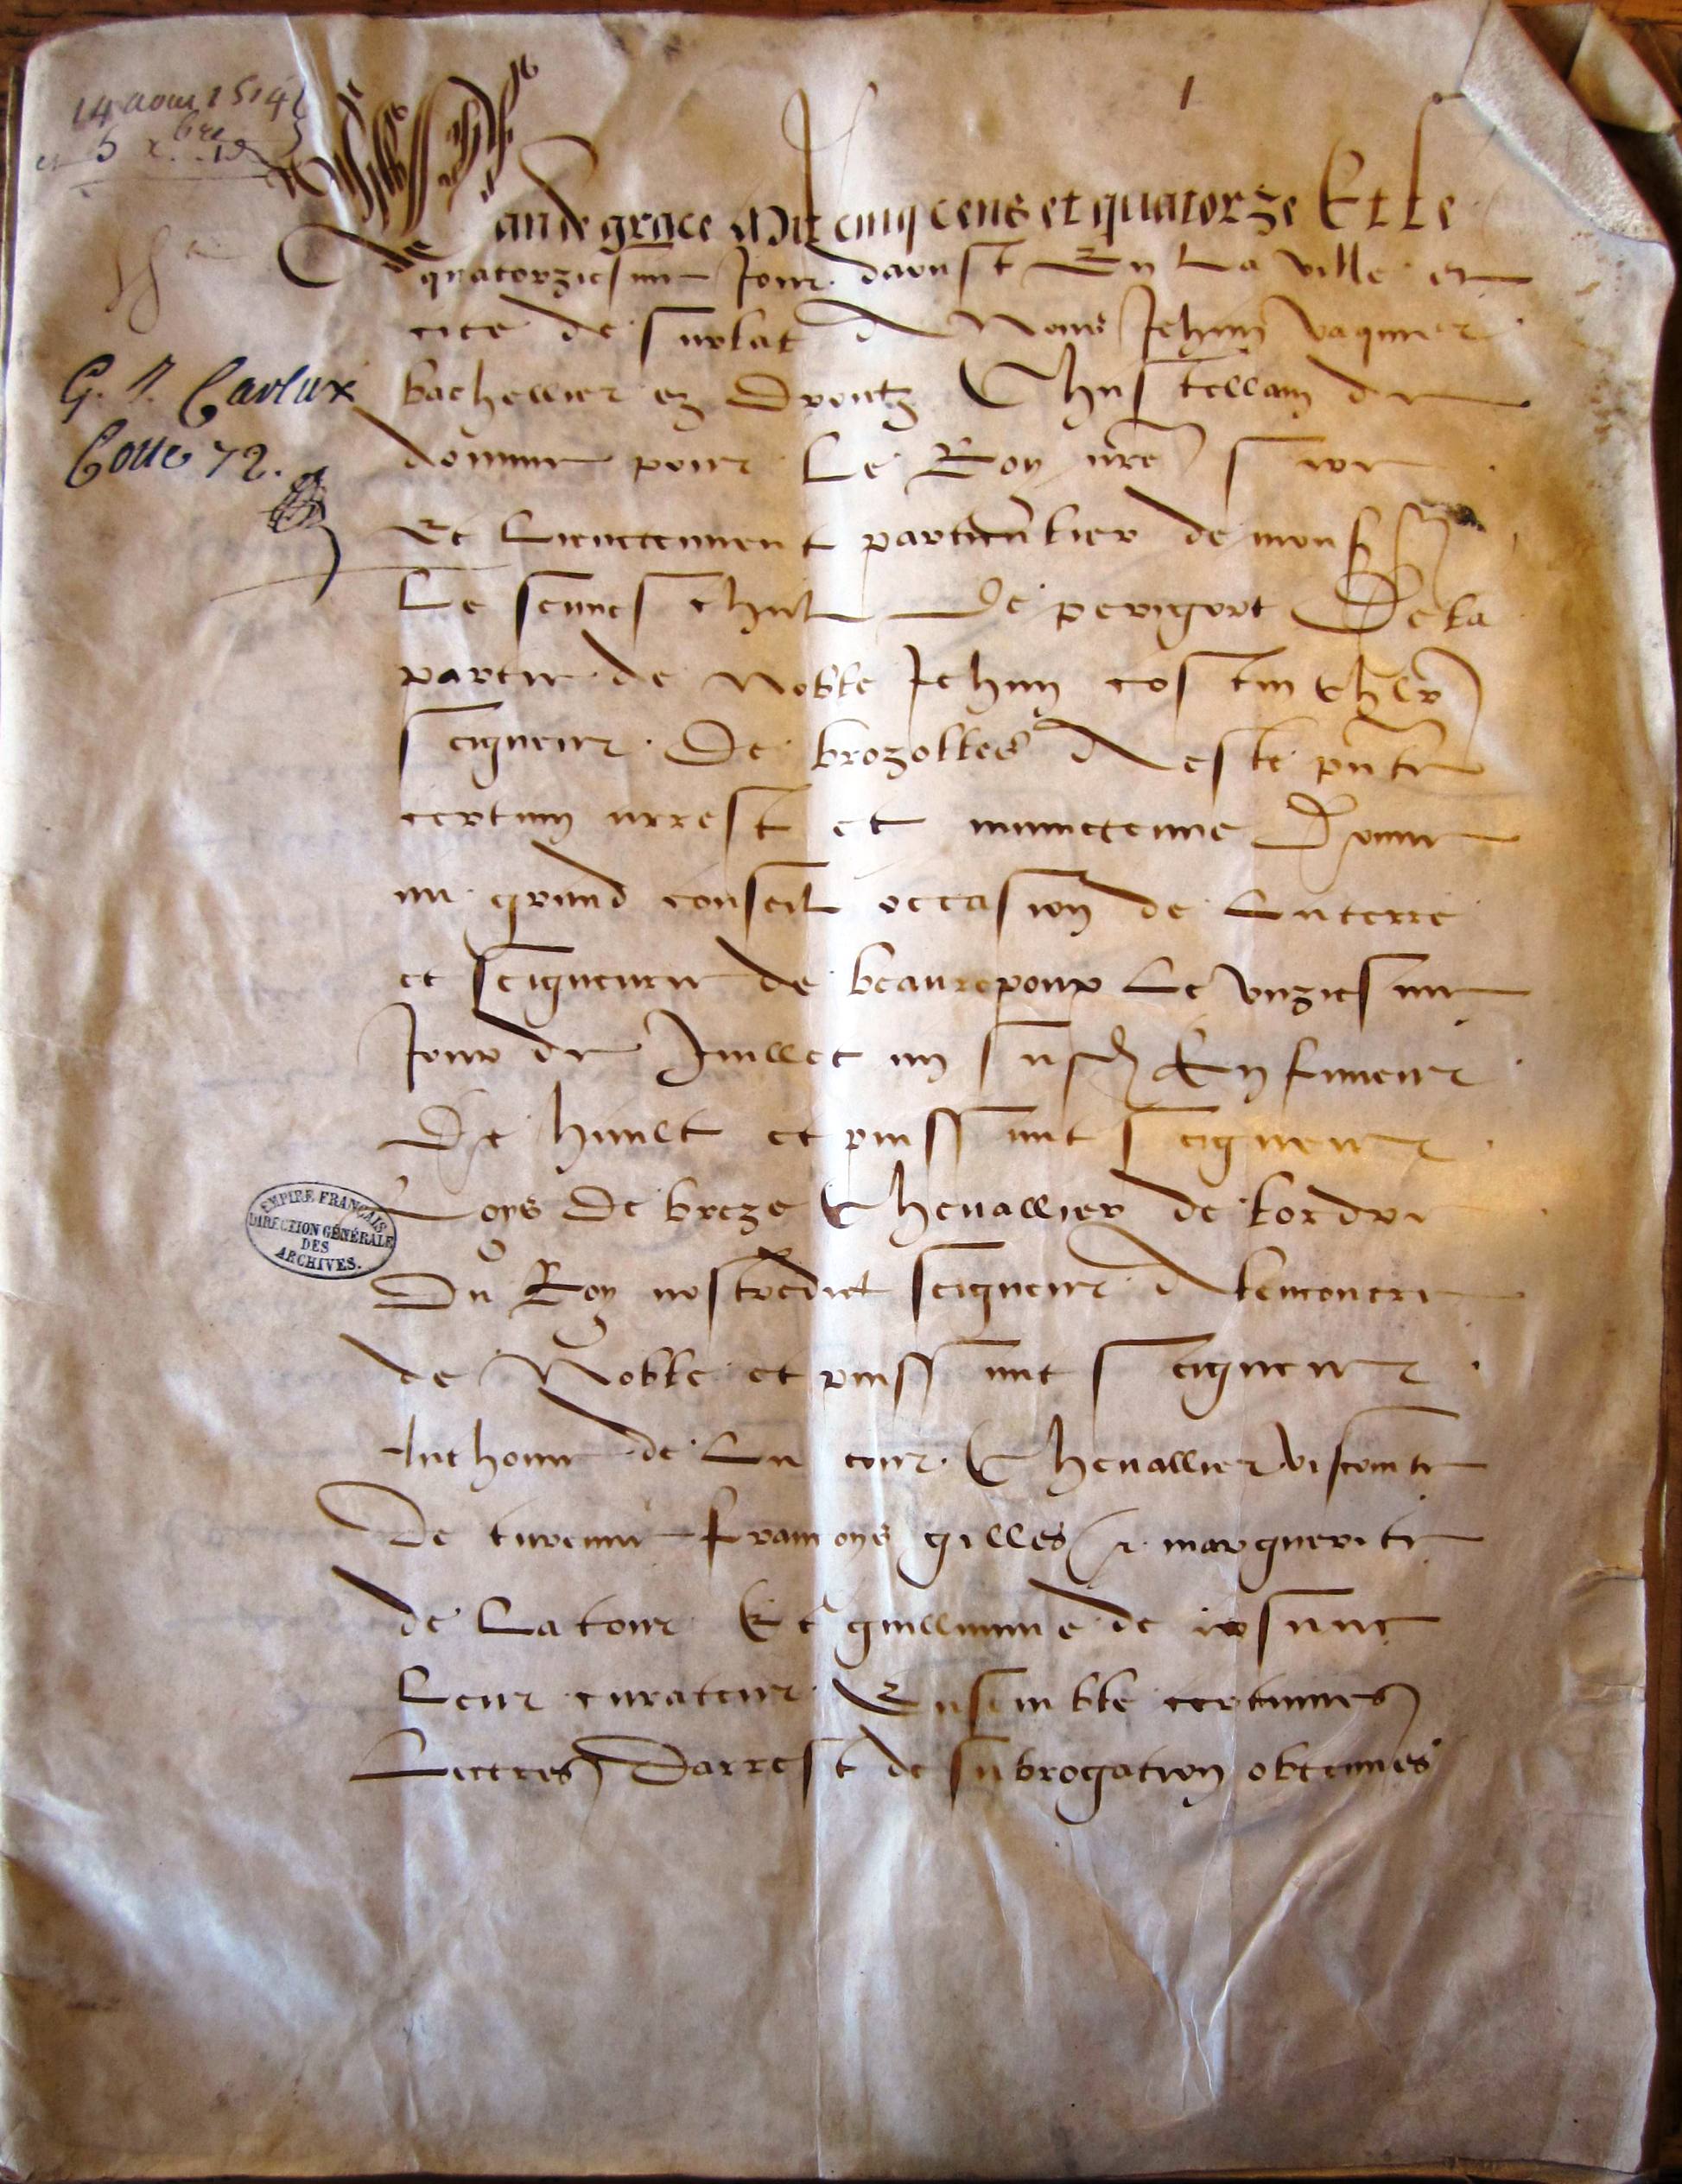 14 aoust 1514
et 5 xbre id
1
L
an de grace Mil cinq cens et quatorze Et le
quatorziesme Jour daoust En La ville et
cite de sarlat A Nous Jehan vaquier
G. 1. Carlux
bachellier ez Droitz Chastellain de
Cotte 72.
domme pour Le Roy nre sire
Et Lieuctenent particulier de mons
Le senneschal De perigort De la
partie de Noble Jehan costin chlr
seigneur De brozolles A este pnte
certain arrest et maintenue Donne
au grand conseil occasion de La terre
et seigneurie de beaurepoux Le unziesme
Jour de Juillet an susd En faueur
De hault et puissant seigneur
EMPIRE FRANÇAIS
DIRECTION GÉNÉRALE
DES
ARCHIVES.
Loys De breze Cheuallier de lordre
Du Roy nostredict seigneur A lencontre
de Noble et puissant seigneur
Anthoine de La tour Cheuallier viscomte
De turenne francoys gilles & marguerite
de La tour Et guillaume de
Leur curateur Ensemble certaines
Lectres Darrest de subrogation obtenues